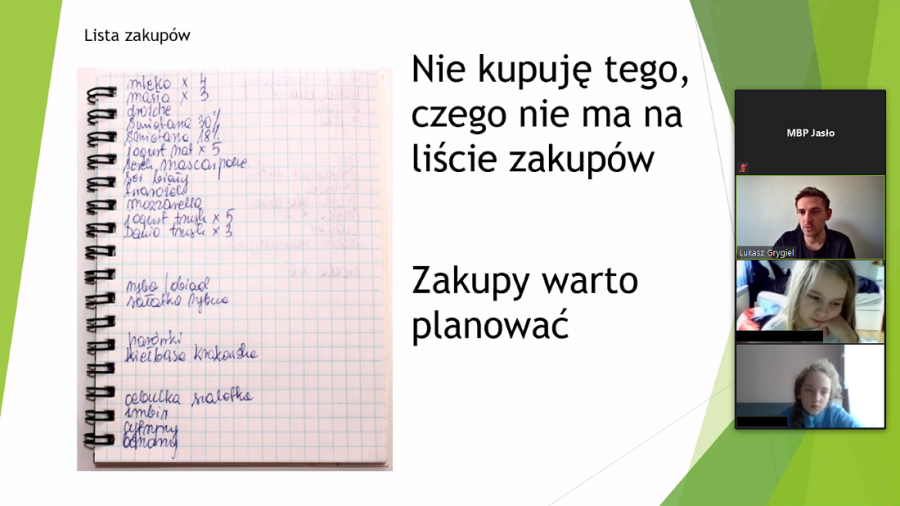 Lista zakupów
mleko x 4
masła x 3
drożdże
śmietana 30%
śmietana 18%
jogurt nat x 5
serek mascarpone
ser biały
mozzarella
jogurt truśk x 5
Danio truśk x 3
ryba / obiad
sałatka rybna
parówki
kiełbasa krakowska
cebulka szalotka
imbir
cytryny
banany
Nie kupuję tego,
czego nie ma na
liście zakupów
Zakupy warto
planować
MBP Jasło
Lukasz Grygiel